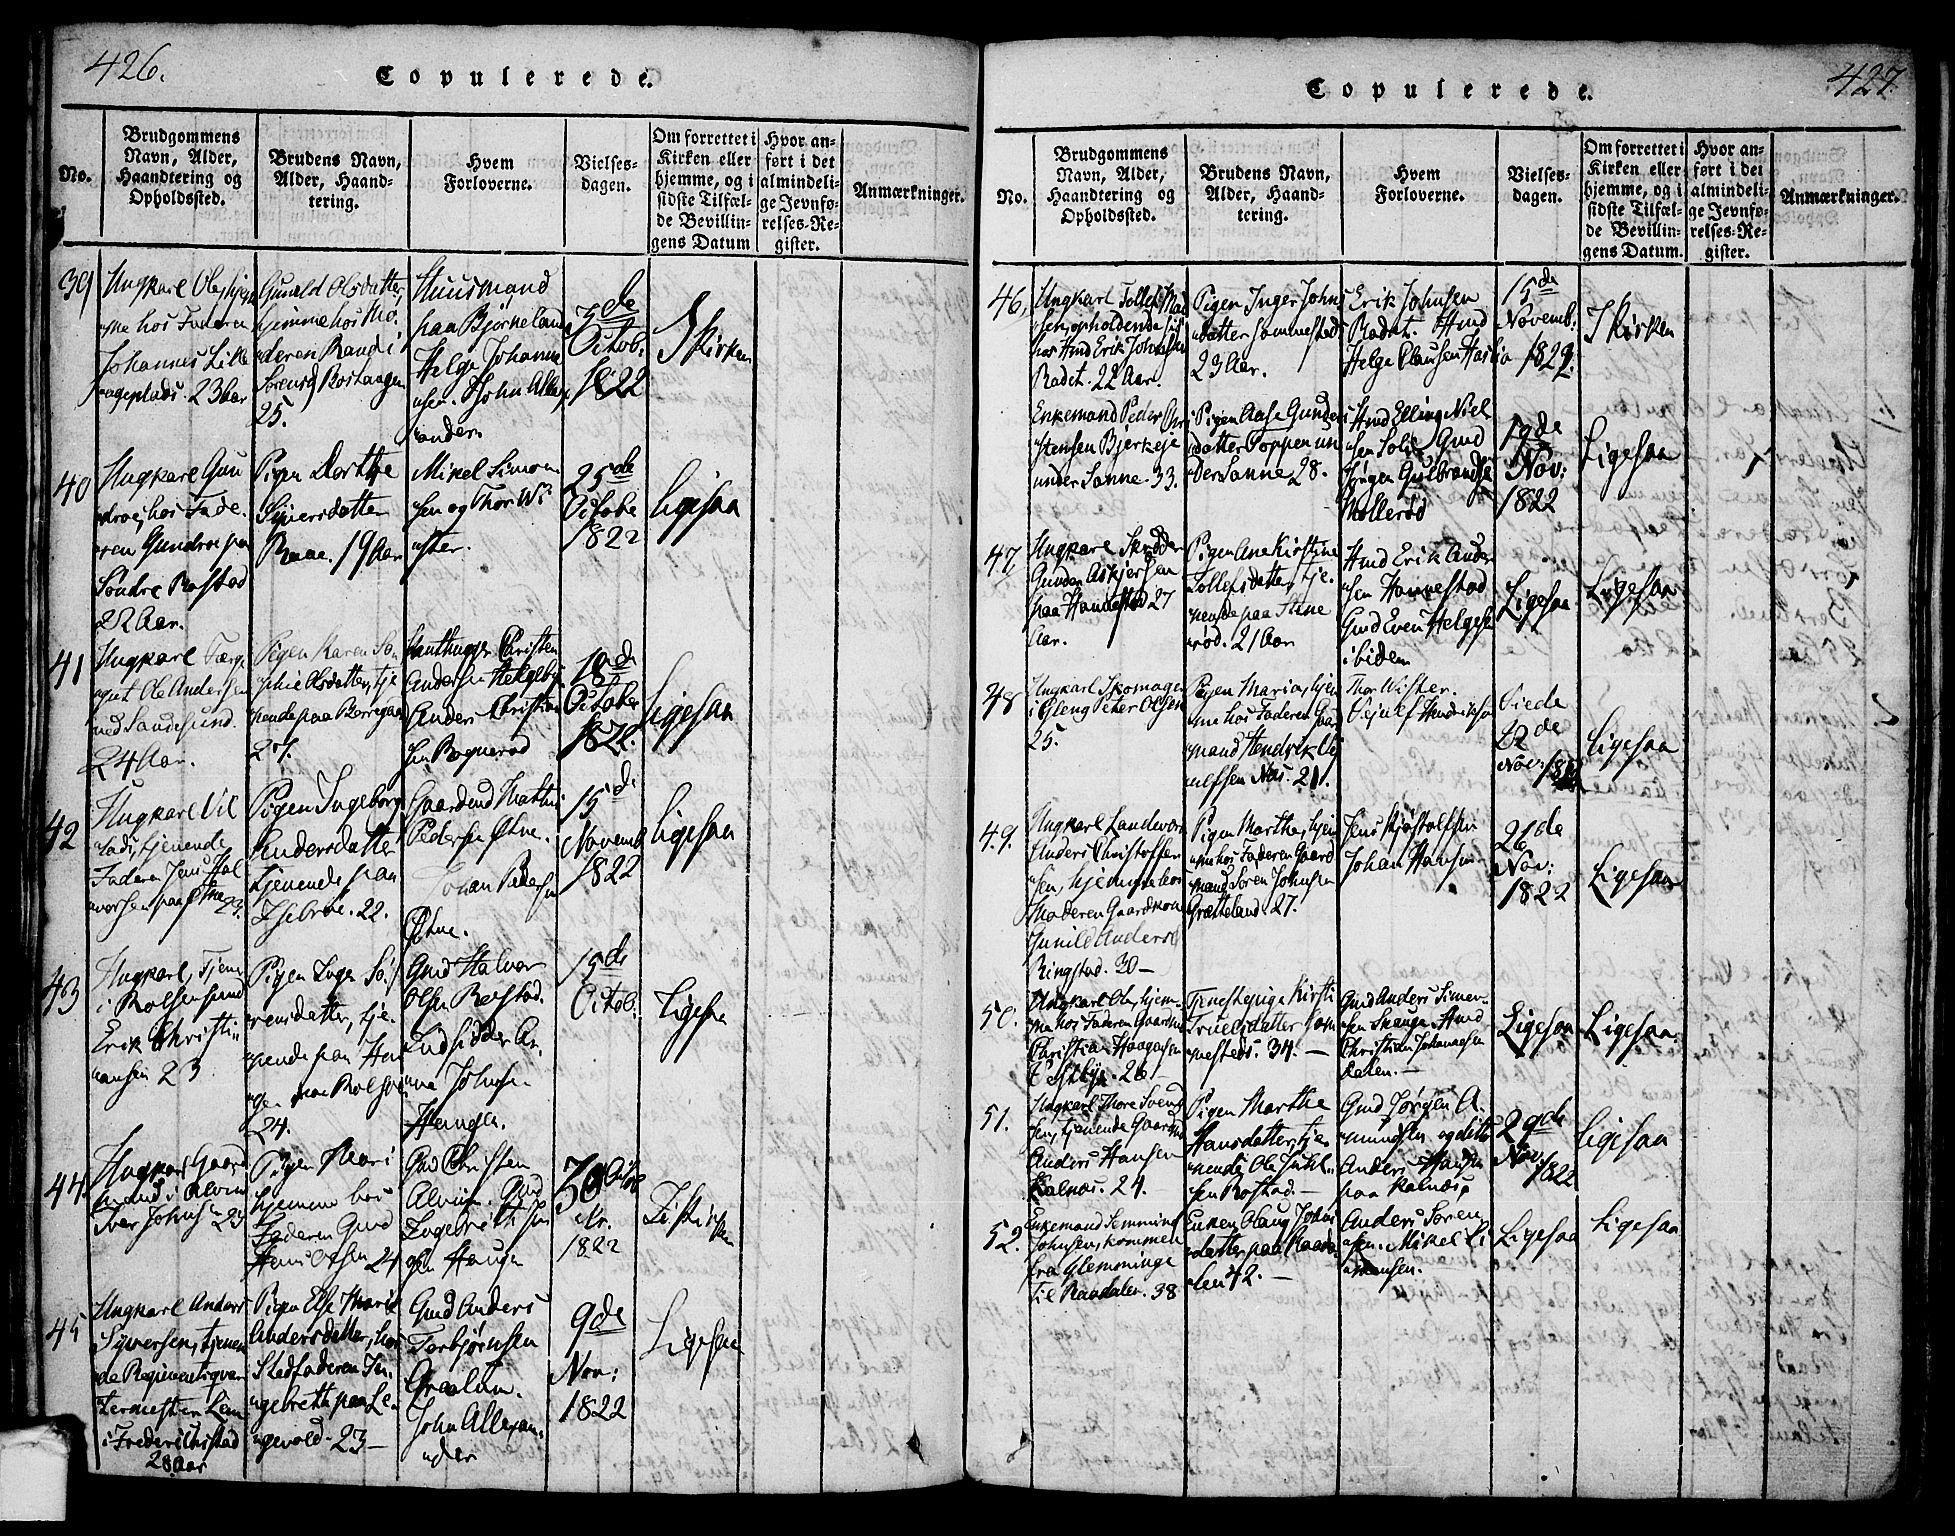 426.
Copulerede.
No.
Brudgommens
Navn, Alder,
Haandtering og
Opholdssted.
Brudens Navn,
Alder, Haand-
tering.
Hvem
Forloverne.
Vielses-
dagen.
Om forrettet i
Kirken eller
hjemme, og i
sidste Tilfæl-
de Bevillin-
gens Datum
Hvor an-
ført i det
almindeli-
ge Jevnfø-
relses-Re-
gister.
Anmærkninger.
39
Ungkarl Ole, hjem
me hos Faderen
Johannes Lille
23 Aar
Gunild Olsdatter,
hjemme hos Mo-
deren Randi
Sørensd
25.
Huusmand
paa Bjørneland
Helge Johanne
sen. John Allex
ander
3de
Octob:
1822
I Kirken
40
Ungkarl Gun
droe, hos Fade-
ren Gundroe paa
Søndre Rostad
22 Aar.
Pigen Dorthe
Siversdatter
Raae. 19 Aar
Mikel Simon
sen og Thor Wi
ster.
25de
Octobe
1822
ligesaa
41
Ungkarl
Ole Andersen
ved Sandesund.
24 Aar.
Pigen Karen So
phie Olsdatter, tje
nende paa Borregaa
27.
Christen
Andersen Helgeby
Anders Christian
sen
18de
Octobe
1822.
ligesaa
42
Ungkarl
tjenende
Faderen Jens Hal
vorsen paa 23.
Pigen Ingeborg
Andersdatter
tjenende paa
Isebroe. 22.
Gaardmd Mathis
Pedersen Østne.
Johan Pedersen
Østne.
15de
Novemb
1822
ligesaa
43
Ungkarl, Tjener
i Rolfsøesund
Erik Christi-
ansen 23
Pigen Inger Sø-
rensdatter, tje-
nende paa Hau
gen paa Rolfsøe
24.
Gmd Halvor
Olsen Rostad.
Johnsen
Haugen.
15de
Octob:
Ligesaa
44.
Ungkarl Gaard
mand i Alvim
Iver Johnsen 23
Pigen Mari
hjemme hos
Faderen Gmd
Hans Olsen 24
Gmd Christen
Alvim. Gmd
Ingebreth
Haugen
30 Octob
1822
I Kirken
45
Ungkarl Anders
Syversen, tjenen
de Regimentsqvar
termester Lem
i Frederichsstad
28 Aar
Pigen Else Marie
Andersdatter, hos
Stedfaderen In-
gebreth paa Le-
ngevold. 23 —
Gmd Anders
Torbjørnsen
Greaker.
John Allexan-
der
9de
Nov:
1822
Ligesaa
427.
Copulerede.
No.
Brudgommens
Navn, Alder,
Haandtering og
Opholdssted.
Brudens Navn,
Alder, Haand-
tering.
Hvem
Forloverne.
Vielses-
dagen.
Om forrettet i
Kirken eller
hjemme, og i
sidste Tilfæl-
de Bevillin-
gens Datum.
Hvor an-
ført i det
almindeli-
ge Jevnfø-
relses-Re-
gister.
Anmærkninger.
46,
Ungkarl Tollef Mad
sen, opholdende sig
hos Hmd Erik Johnsen
Radet. 22 Aar.
Pigen Inger Johns
datter Hannestad
23 Aar.
Erik Johnsen
Radet. Hmd
Helge Clausen Haslia
15de
Novemb:
1822.
I Kirken
Enkemand Peder Chri
stensen Bjerkeje
under Sanne. 33.
Pigen Aase Gunders
datter Toppen un
der Sanne 28.
Hmd Elling Niel
sen Solie. Gmd
Jørgen Gulbrandse
Møllerød
19de
Nov:
1822
Ligesaa
47
Ungkarl Skrædder
Gunder Askjersen
paa Hannestad 27
Aar.
Pigen Ane Kirstine
Tollefsdatter, tje-
nende paa Stene
rød. 21 Aar
Hmd Erik Ander
sen Hannestad
Gmd Even Helgese
ibidem
Ligesaa
Ligesaa
48
Ungkarl Skomager
i Gleng Peter Olsen
25.
Pigen Maria, hjem
me hos Faderen Gaar
mand Hendrik Vej
ulfsen Næs. 21.
Thor Wister.
Vejulf Hendriksen
Viede
22de
Nov: 1822
ligesaa
49.
Ungkarl Landevær
Anders Christoffer
sen, hjemme hos
Moderen Gaardkone
Gunild Andersd
Ringstad. 30 —
Pigen Marthe, hjem
me hos Faderen Gaard
mand Søren Johnsen
Grætteland. 27.
Jens Kjøstolfsen
Johan Hansen
26de
Nov:
1822
Ligesaa
50.
Ungkarl Ole, hjem-
me hos Faderen Gaardm
Christian Haagensen
Vestbye. 26 —
Tjenestepige Kirsti
Truelsdatter Han
nestad. 34. —
Gmd Anders Simen-
sen Skauge. Hmd
Christian Johannesen
Ligesaa
Ligesaa
51.
Ungkarl Thore Svend
sen, tjenende Gaardmd
Anders Hansen
Kalnæs. 24.
Pigen Marthe
Hansdatter, tje
nende Ole Juhl-
sen Rostad. —
Gmd Jørgen A-
mundsen og ditto
Anders Hansen
paa Kalnæs,
29de
Nov:
1822
ligesaa
52.
Enkemand Semming
Johnsen, kommen
fra Glemminge
til Randalen. 38
Enken Olaug Johns
datter paa
len 42. —
Anders Søren
sen. Mikel Si
monsen.
Ligesaa
Ligesaa